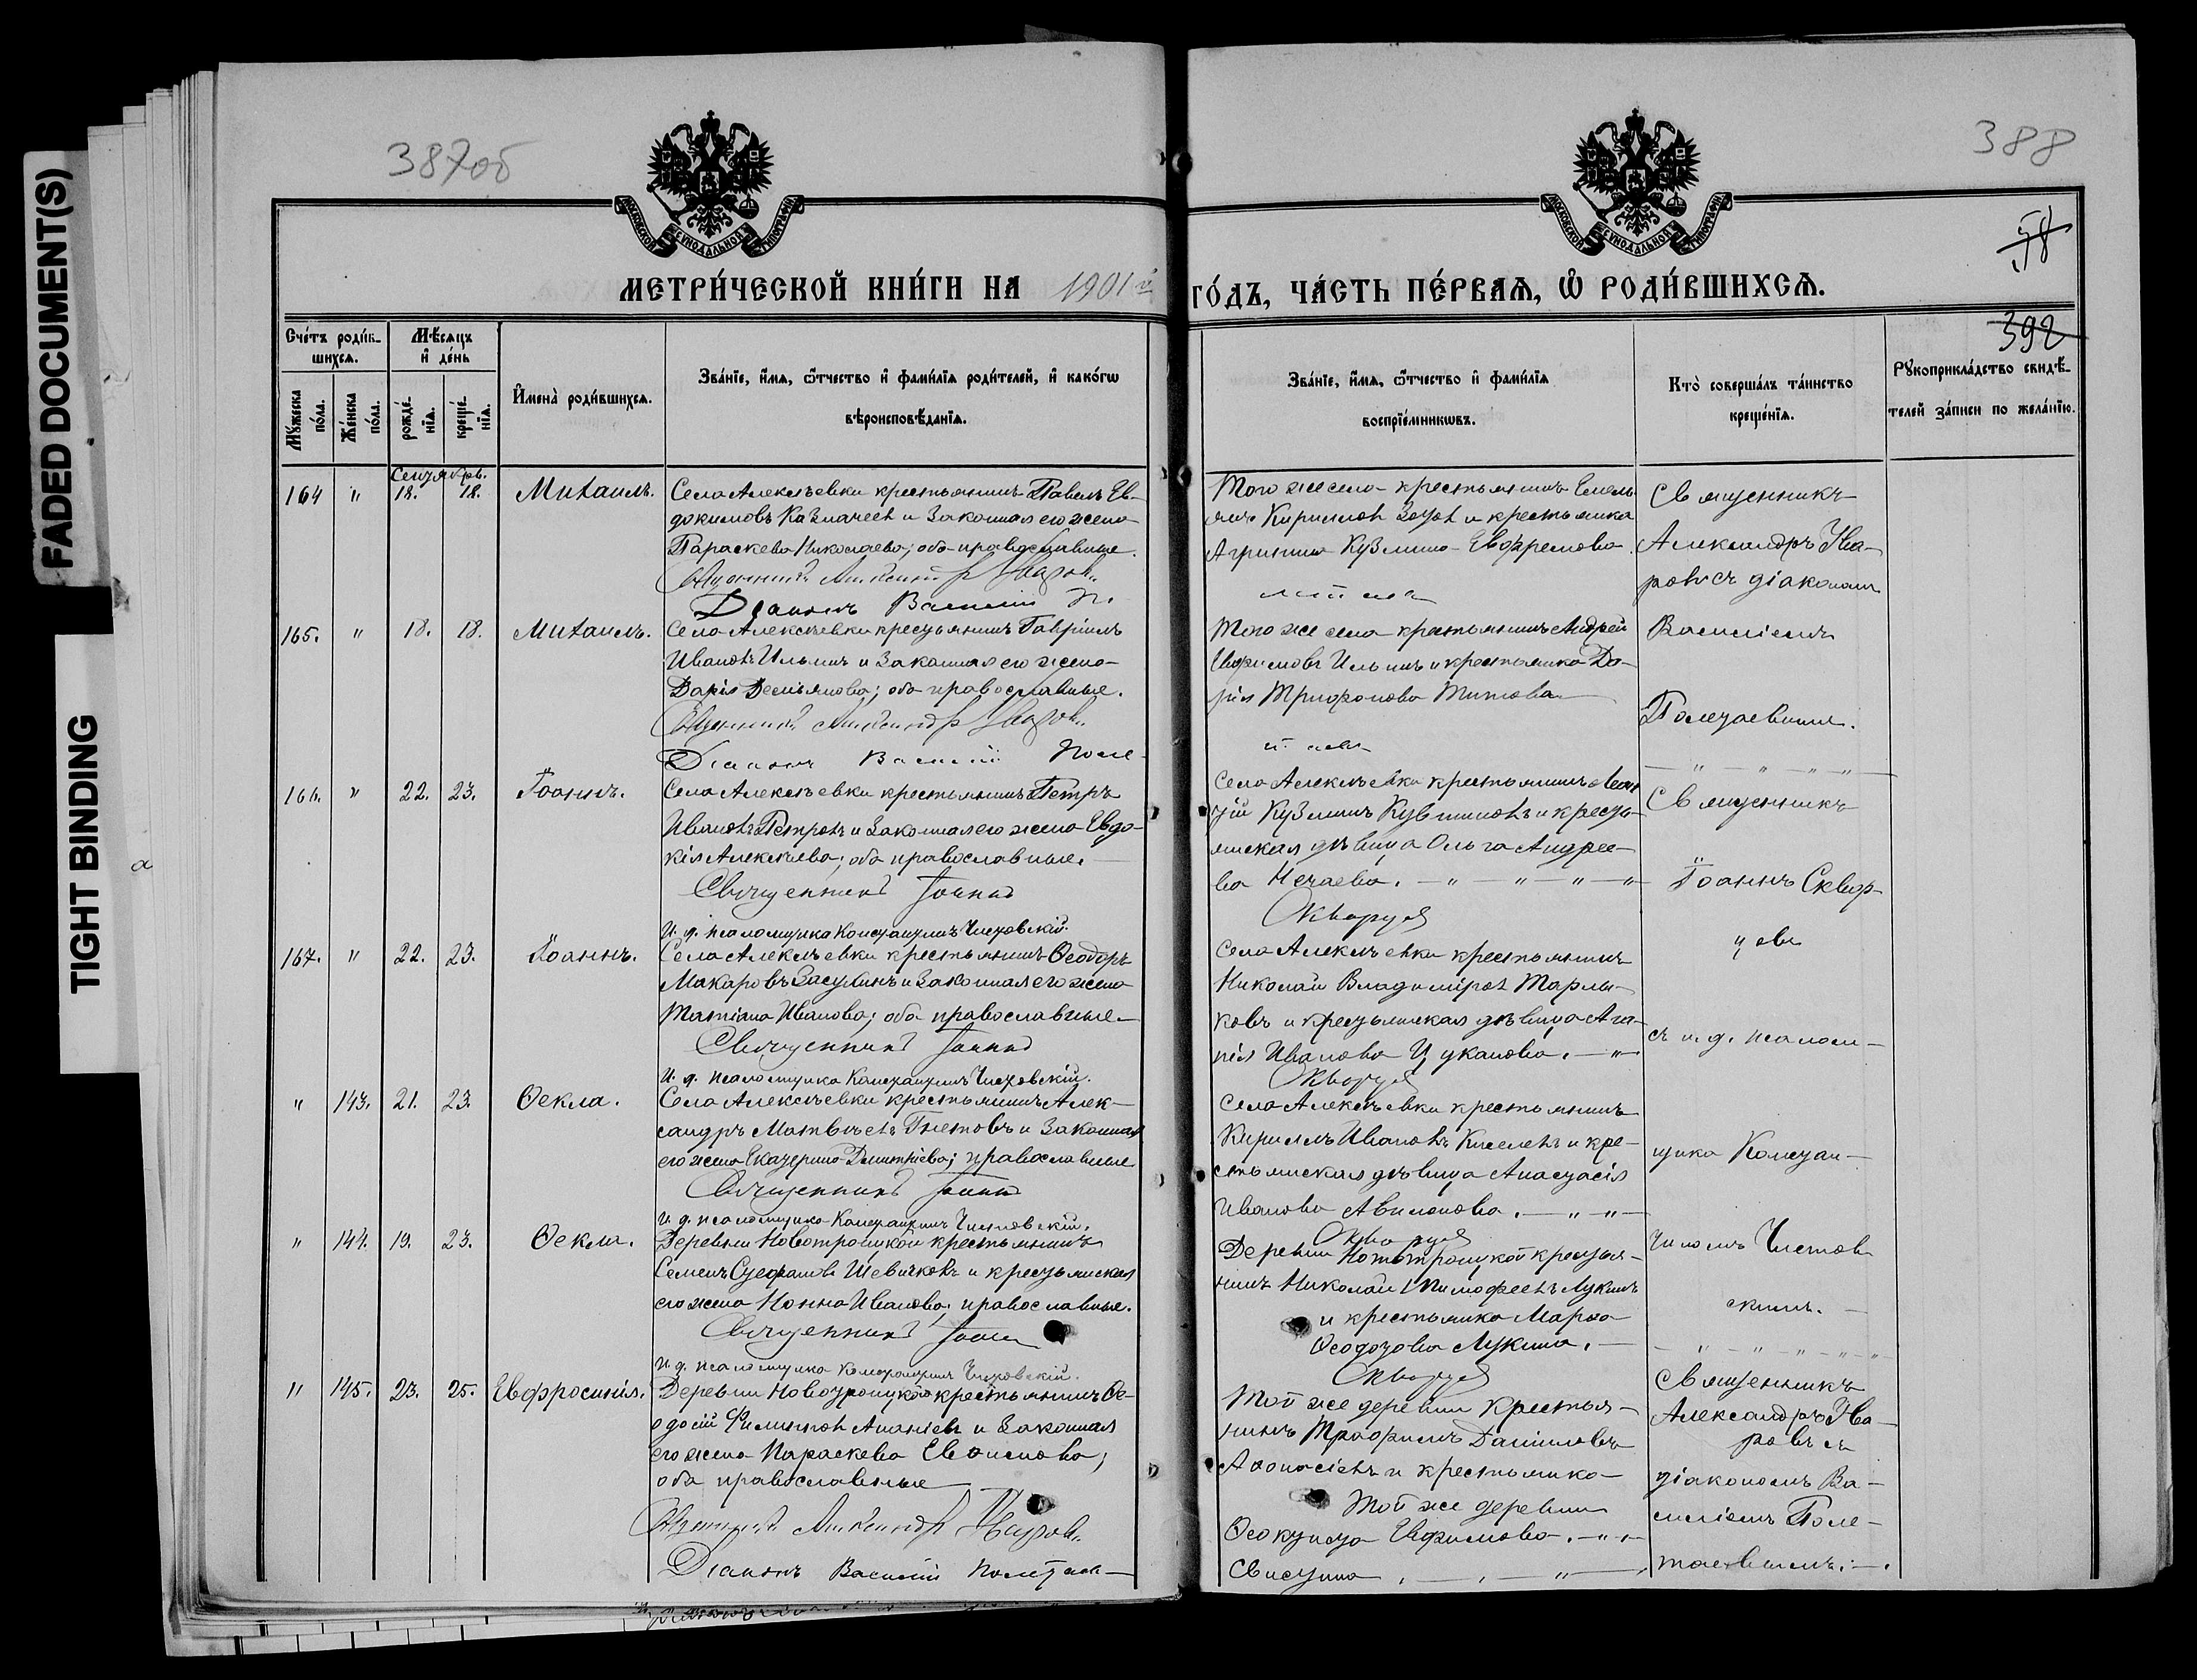 FADED DOCUMENT(S)
TIGHT BINDING
387об
388
58
392
МОСКОВСКОЙ СѴНОДАЛЬНОЙ ТИПОГРАФІИ
МОСКОВСКОЙ СѴНОДАЛЬНОЙ ТИПОГРАФІИ
МЕТРИ́ЧЕСКОЙ КНИ́ГИ НА 1901й
ГО́ДЪ, ЧА́СТЬ ПЕ́РВАѦ, Ѡ҆ РОДИ́ВШИХСѦ.
Сче́тъ роди́в-
шихсѧ.
Мꙋжеска по́ла.
Же́нска по́ла.
Мѣ́сѧцъ и҆ де́нь
рожде́-нїѧ.
креще́-нїѧ.
И҆мена̀ роди́вшихсѧ.
Зва́нїе, и҆́мѧ, ѻ҆́тчество и҆ фами́лїѧ роди́телей, и҆ како́гѡ
вѣроисповѣ́данїѧ.
Зва́нїе, и҆́мѧ, ѻ҆́тчество и҆ фами́лїѧ
воспрїе́мникѡвъ.
Кто̀ соверша́лъ та́инство
креще́нїѧ.
Рꙋкоприкла́дство свидѣ́-
телей за́писи по жела́нїю.
Сентябрь.
164 " 18. 18. Михаилъ.
Села Алексѣевки крестьянинъ Павелъ Ев-
докимовъ Казначеевъ и законная его жена
Параскева Николаева; оба православные.
Священникъ Александръ Уваровъ.
Діаконъ Василій По
Того же села крестьянинъ Емель-
янъ Кирилловъ Зотовъ и крестьянка
Агрипина Кузмина Ефремова.
Священникъ
Александръ Ува-
ровъ съ діакономъ
165. " 18. 18. Михаилъ.
Села Алексѣевки крестьянинъ Гавріилъ
Ивановъ Ильинъ и законная его жена
Дарія Демьянова; оба православные.
Священникъ Александръ Уваровъ.
Діаконъ Василій Поле-
Того же села крестьянинъ Андрей
Ефимовъ Ильинъ и крестьянка Да-
рія Трифонова Титова
Василіемъ
Полетаевымъ.
166. " 22. 23. Іоаннъ.
Села Алексѣевки крестьянинъ Петръ
Ивановъ Петровъ и законная его жена Евдо-
кія Алексѣева; оба православные.
Священникъ Іоаннъ
И. д. псаломщика Константинъ Чистовскій.
Села Алексѣевки крестьянинъ
Кузминъ Кувшиновъ и кресть-
янская дѣвица Ольга Андрее-
ва Нечаева. — " — " — " — "
Скворцовъ
Священникъ
Іоаннъ Сквор-
цовъ
167. " 22. 23. Іоаннъ.
Села Алексѣевки крестьянинъ Ѳеодоръ
Макаровъ Засухинъ и законная его жена
Татіана Иванова; оба православные.
Священникъ Іоаннъ
И. д. псаломщика Константинъ Чистовскій.
Села Алексѣевки крестьянинъ
Николай Владиміровъ Тарлы-
ковъ и крестьянская дѣвица Ага-
пія Иванова Цуканова. — "
Скворцовъ
съ и. д. псалом-
" 143. 21. 23. Ѳекла.
Села Алексѣевки крестьянинъ Алек-
сандръ Матвѣевъ Глетовъ и законная
его жена Екатерина Дмитріева; православные
Священникъ Іоаннъ
И. д. псаломщика Константинъ Чистовскій.
Села Алексѣевки крестьянинъ
Кириллъ Ивановъ Киселевъ и кре-
стьянская дѣвица Анастасія
Иванова Авилонова. — " — "
Скворцовъ
щика Констан-
" 144. 19. 23. Ѳекла.
Деревни Новотроицкой крестьянинъ
Семенъ Стефановъ Шевяковъ и крестьянская
его жена Нонна Иванова; православные.
Священникъ Іоаннъ
И. д. псаломщика Константинъ Чистовскій.
Деревни Новотроицкой крестья-
нинъ Николай Тимофеевъ Лукинъ
и крестьянка Марфа
Ѳеодотова Лукина.
Скворцовъ
тиномъ Чистов-
скимъ.
" 145. 23. 25. Евфросинія.
Деревни Новотроицкой крестьянинъ Ѳе-
одосій Филиповъ Ананіевъ и законная
его жена Параскева
оба православные
Священникъ Александръ Уваровъ.
Діаконъ Василій Полетаев
Той же деревни крестья-
нинъ Трофимъ Даниловъ
Аѳонасіевъ и крестьянка
Той же деревни
Ѳеоктиста Ефимова. — " —
Свистуна
Священникъ
Александръ Ува-
ровъ съ
діакономъ Ва-
силіемъ Поле-
таевымъ.